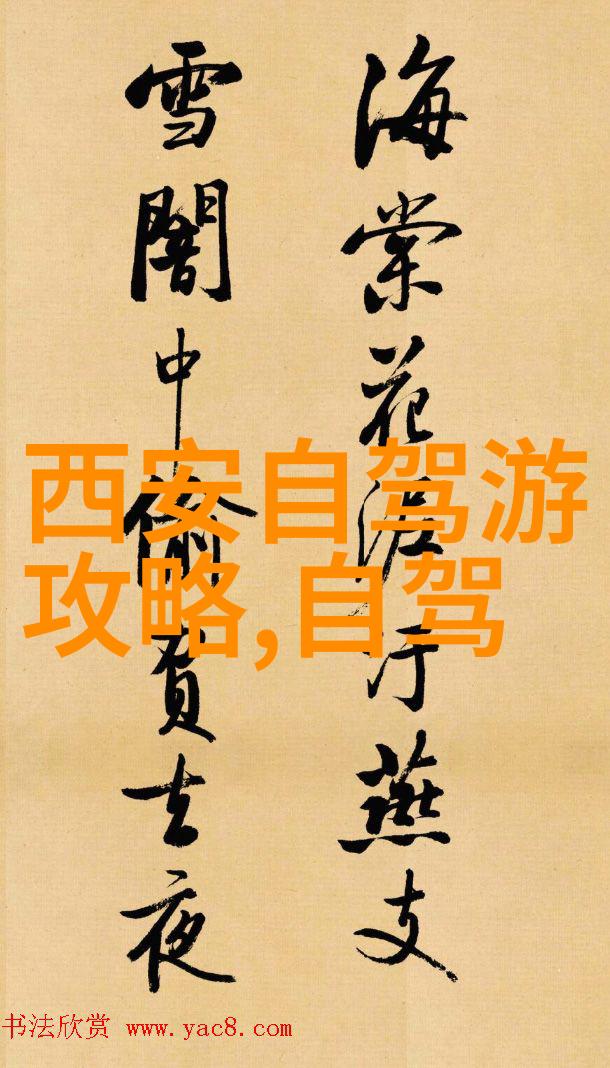 海棠花泥汙燕支
雪闇中偷負去夜
西安自驾游
攻略,自驾
书法欣赏 www.yac8.com